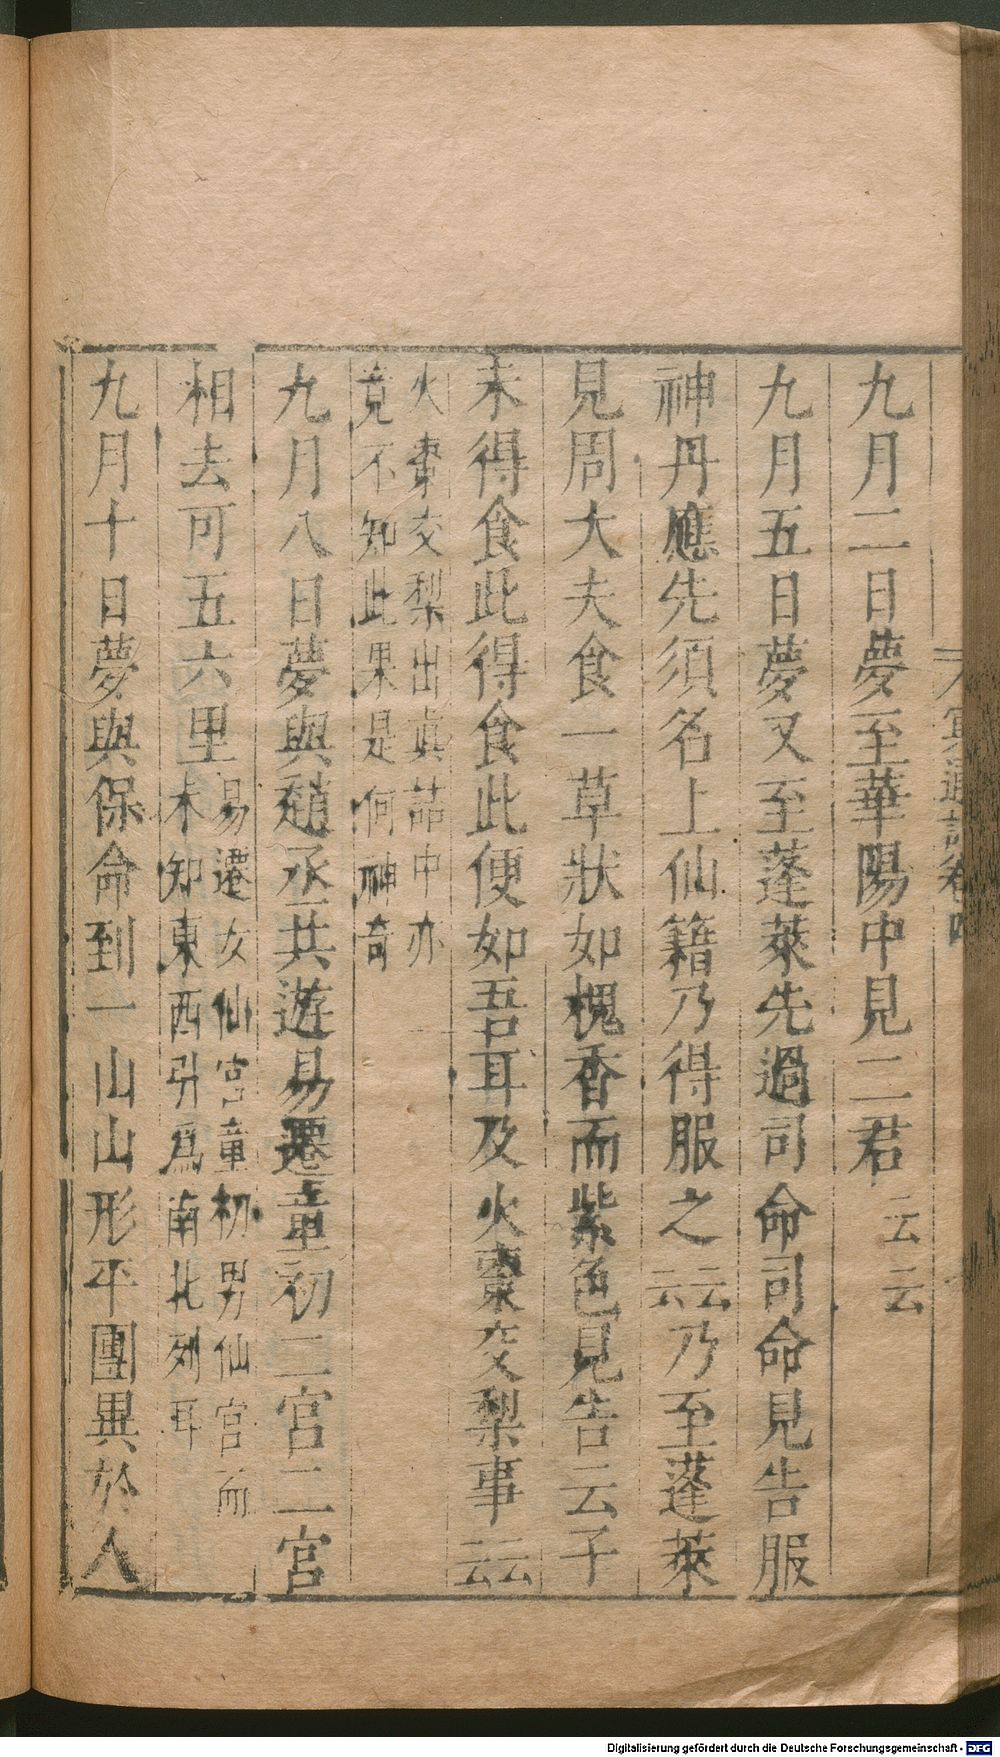 九月二日夢至華陽中見二君云云
九月五日夢又至蓬萊先過司命司命見告服
神丹應先須名上仙籍乃得服之云云乃至蓬萊
見周大夫食一草狀如槐香而紫色見告云子
未得食此得食此便如吾耳及火棗交梨事云云
火棗交梨出眞誥中亦
竟不知此果是何神奇
九月八日夢與趙丞共遊易遷童初二宮二宮
相去可五六里
易遷女仙宮童初男仙宮而
未知東西引爲南北列耳
九月十日夢與保命到一山山形平團異於人
Digitalisierung gefördert durch die Deutsche Forschungsgemeinschaft - DFG